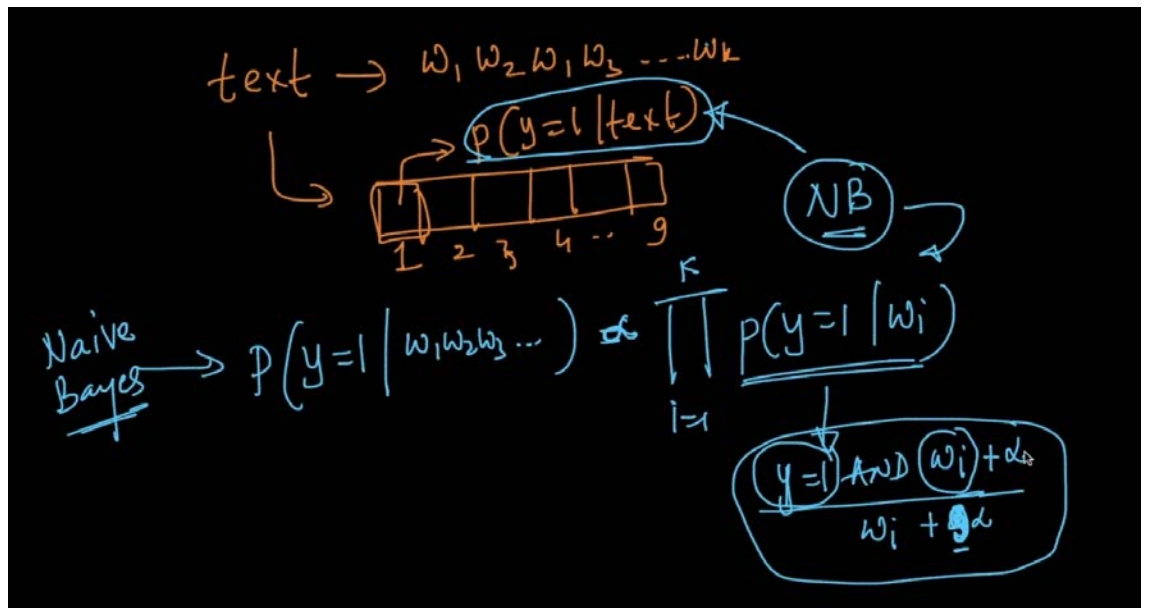 text → w₁ w₂ w₁ w₃ ....wₖ
P(y=1 | text)
NB
1 2 3 4 .. 9
Naive
Bayes → P(y=1 | w₁w₂w₃...) ∝ ∏ P(y=1 | wᵢ)
K
i=1
y=1 AND wᵢ + α
wᵢ + 9α